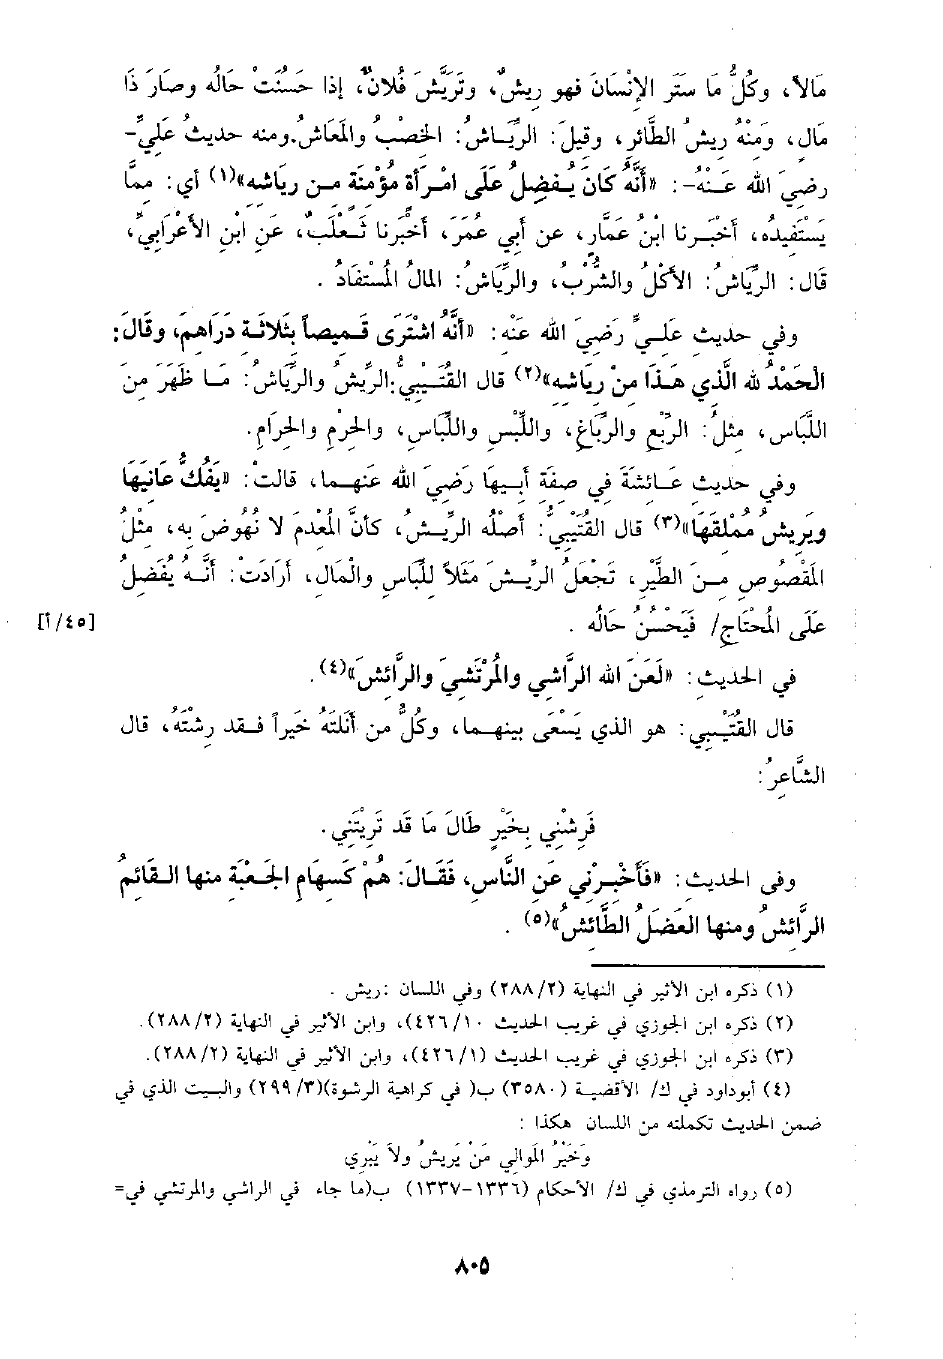 مَالاً، وكُلُّ مَا سَتَر الإنْسَانَ فهو رِيشٌ، وتَرَيَّشَ فُلانٌ، إذا حَسُنَتْ حَالُه وصَارَ ذَا
مَال، ومنْهُ ريشُ الطَّائر، وقيلَ: الرِّيَاشُ: الخصْبُ والمَعَاشُ.ومنه حديثُ عَليٍّ-
رضيَ الله عَنْهُ-: «أنَّهُ كَانَ يُفضِلُ عَلَى امْرَأة مُؤمنَة مِن رياشه»(١) أي: ممَّا
يَسْتَفيدُه، أخبَرنا ابنُ عمَّار، عن أبي عُمَرَ، أخبَرنا ثَعلَبٌ، عَن ابْنِ الأعْرَابيِّ،
قَال: الرِّيَاشُ: الأكْلُ والشُّرْبُ، والرِّيَاشُ: المالُ المُسْتفَادُ .
وفي حديث عَليٍّ رَضيَ الله عَنْه: «أنَّهُ اشْتَرَى قَميصاً بثَلاثَة دَرَاهمَ، وقَالَ:
الحَمْدُ لله الَّذي هَذَا منْ رياشه»(٢) قال القُتَيْبيُّ:الرِّيشُ والرِّيَاشُ: مَا ظَهَرَ منَ
اللِّبَاس، مثلُ: الرِّبْع والرِّبَاغ، واللِّبْس واللِّبَاس، والحِرْم والحِرَام.
وفي حديث عَائشَةَ في صفَة أبيهَا رَضيَ الله عَنهما، قالتْ: «يَفُكُّ عَانيَهَا
ويَريشُ مُمْلقَهَا»(٣) قال القُتَيْبيُّ: أصْلُه الرِّيشُ، كأنَّ المُعْدمَ لا نُهُوضَ به، مثْلُ
المَقْصُوص منَ الطَّيْر، تَجْعَلُ الرِّيشَ مَثَلاً للِّبَاس والْمَال، أرَادَتْ: أنَّهُ يُفْضلُ
عَلَى المُحْتَاج/ فَيَحْسُنُ حَالُه . [٤٥/أ]
في الحديث: «لَعَنَ الله الرَّاشي والمُرْتَشيَ والرَّائشَ»(٤).
قال القُتَيْبي: هو الذي يَسْعَى بينهما، وكلُّ من أنَلتَهُ خَيراً فقد رشْتَهُ، قال
الشَّاعِرُ:
فَرِشْنِي بِخَيْرٍ طَالَ مَا قَد تَرِيتَنِي.
وفى الحديث: «فَأخْبرْني عَن النَّاس، فَقَالَ: هُمْ كَسهَام الجَعْبَة منها القَائمُ
الرَّائشُ ومنها العَضلُ الطَّائشُ»(٥) .
(١) ذكره ابن الأثير في النهاية (٢٨٨/٢) وفي اللسان :ريش .
(٢) ذكره ابن الجوزي في غريب الحديث ٤٢٦/١٠)، وابن الأثير في النهاية (٢٨٨/٢).
(٣) ذكره ابن الجوزي في غريب الحديث (٤٢٦/١)، وابن الأثير في النهاية (٢٨٨/٢).
(٤) أبوداود في ك/ الأقضية (٣٥٨٠) ب( في كراهية الرشوة)(٢٩٩/٣) والبيت الذي في
ضمن الحديث تكملته من اللسان هكذا :
وَخَيْرُ المَوالِي مَنْ يَرِيشُ ولاَ يَبْرِي
(٥) رواه الترمذي في ك/ الأحكام (١٣٣٦-١٣٣٧) ب(ما جاء في الراشي والمرتشي في=
٨٠٥